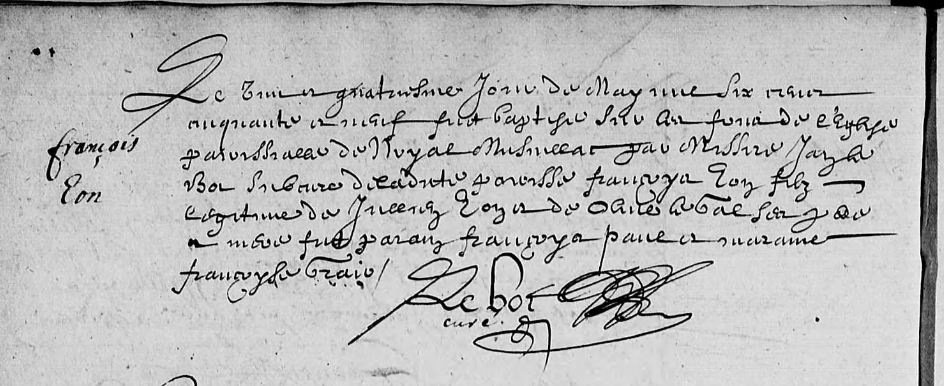 françois
Eon
Le vingt quatriesme Jour de May mil six cent
cinquante et neuf fut baptisé sur les fons de l'Eglise
paroissialle de Noyal Musuillac par Missire Jan le
Bot subcuré de ladicte paroisse françoys Eon filz
legitime de Jullien Eon et de Olive le Gal ses pere
et mere fut parain françoys et maraine
françoyse
Le bot
curé